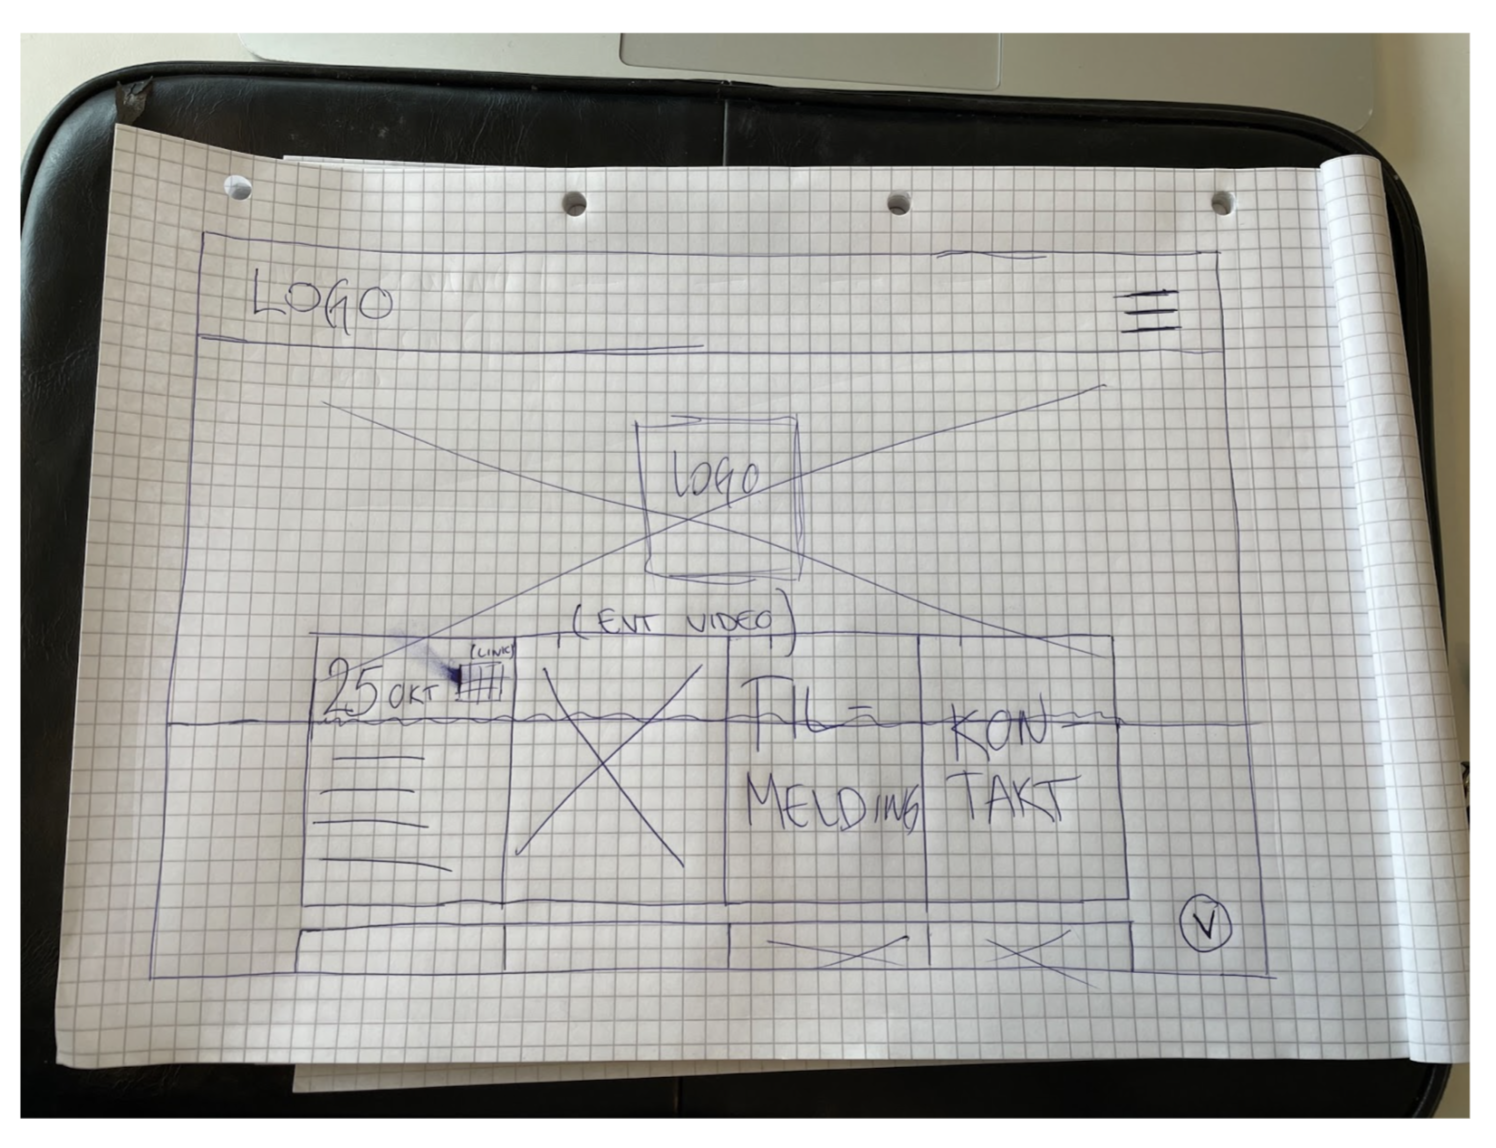 LOGO
LOGO
(EVT VIDEO)
25 OKT
(LINK)
TIL-
MELDING
KON-
TAKT
V